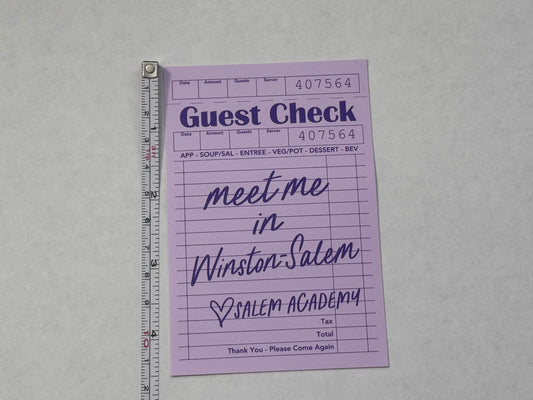 Date Amount Guests Server 407564
Guest Check
Date Amount Guests Server 407564
APP - SOUP/SAL - ENTREE - VEG/POT - DESSERT - BEV
meet me
in
Winston-Salem
♡ SALEM ACADEMY
Tax
Total
Thank You - Please Come Again